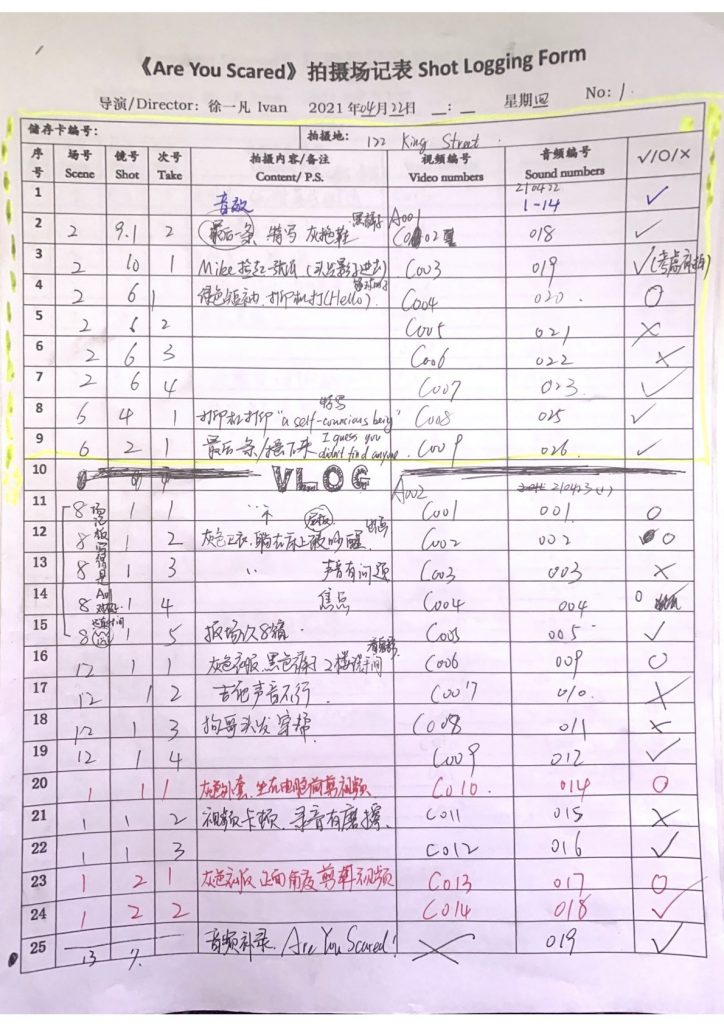 《Are You Scared》拍摄场记表 Shot Logging Form
导演/Director: 徐一凡 Ivan 2021年04月22日 __:__ 星期四 No: 1.
储存卡编号: 拍摄地: 122 King Street.
序号 场号 Scene 镜号 Shot 次号 Take 拍摄内容/备注 Content/ P.S. 视频编号 Video numbers 音频编号 Sound numbers ✓/O/×
1 音效 210422 1-14 ✓
2 2 9.1 2 最后一条 特写 灰拖鞋 A001 C002 018 ✓
3 2 10 1 Mike 捡起一张纸 C003 019 ✓
4 2 6 1 绿色短袖.打印机打(Hello). C004 020. O
5 2 6 2 C005 021 ×
6 2 6 3 C006 022 ×
7 2 6 4 C007 023. ✓
8 5 4 1 打印机打印 "a self-conscious being" 特写 C008 025 ✓
9 6 2 1 最后一条/ I guess you didn't find anyone C009 026. ✓
10 VLOG
A002 210423
11 8 1 1 C001 001. O
12 8 1 2 灰色卫衣.躺在床上被吵醒. C002 002 O
13 8 1 3 声音有问题 C003 003 ×
14 8 1 4 焦点 C004 004 O
15 8 1 5 报场次8错. C005 005 ✓
16 12 1 1 灰色衣服.黑色裤子 C006 009 O
17 12 1 2 吉他声音不行 C007 010. ×
18 12 1 3 头发穿帮 C008 011 ×
19 12 1 4 C009 012 ✓
20 1 1 1 灰色外套.坐在电脑前剪视频 C010. 014 O
21 1 1 2 视频卡顿.录音有摩擦. C011 015 ×
22 1 1 3 C012 016 ✓
23 1 2 1 灰色衣服 正面角度 剪辑视频 C013 017 O
24 1 2 2 C014 018 ✓
25 13 7. 音频补录. Are You Scared! × 019 ✓